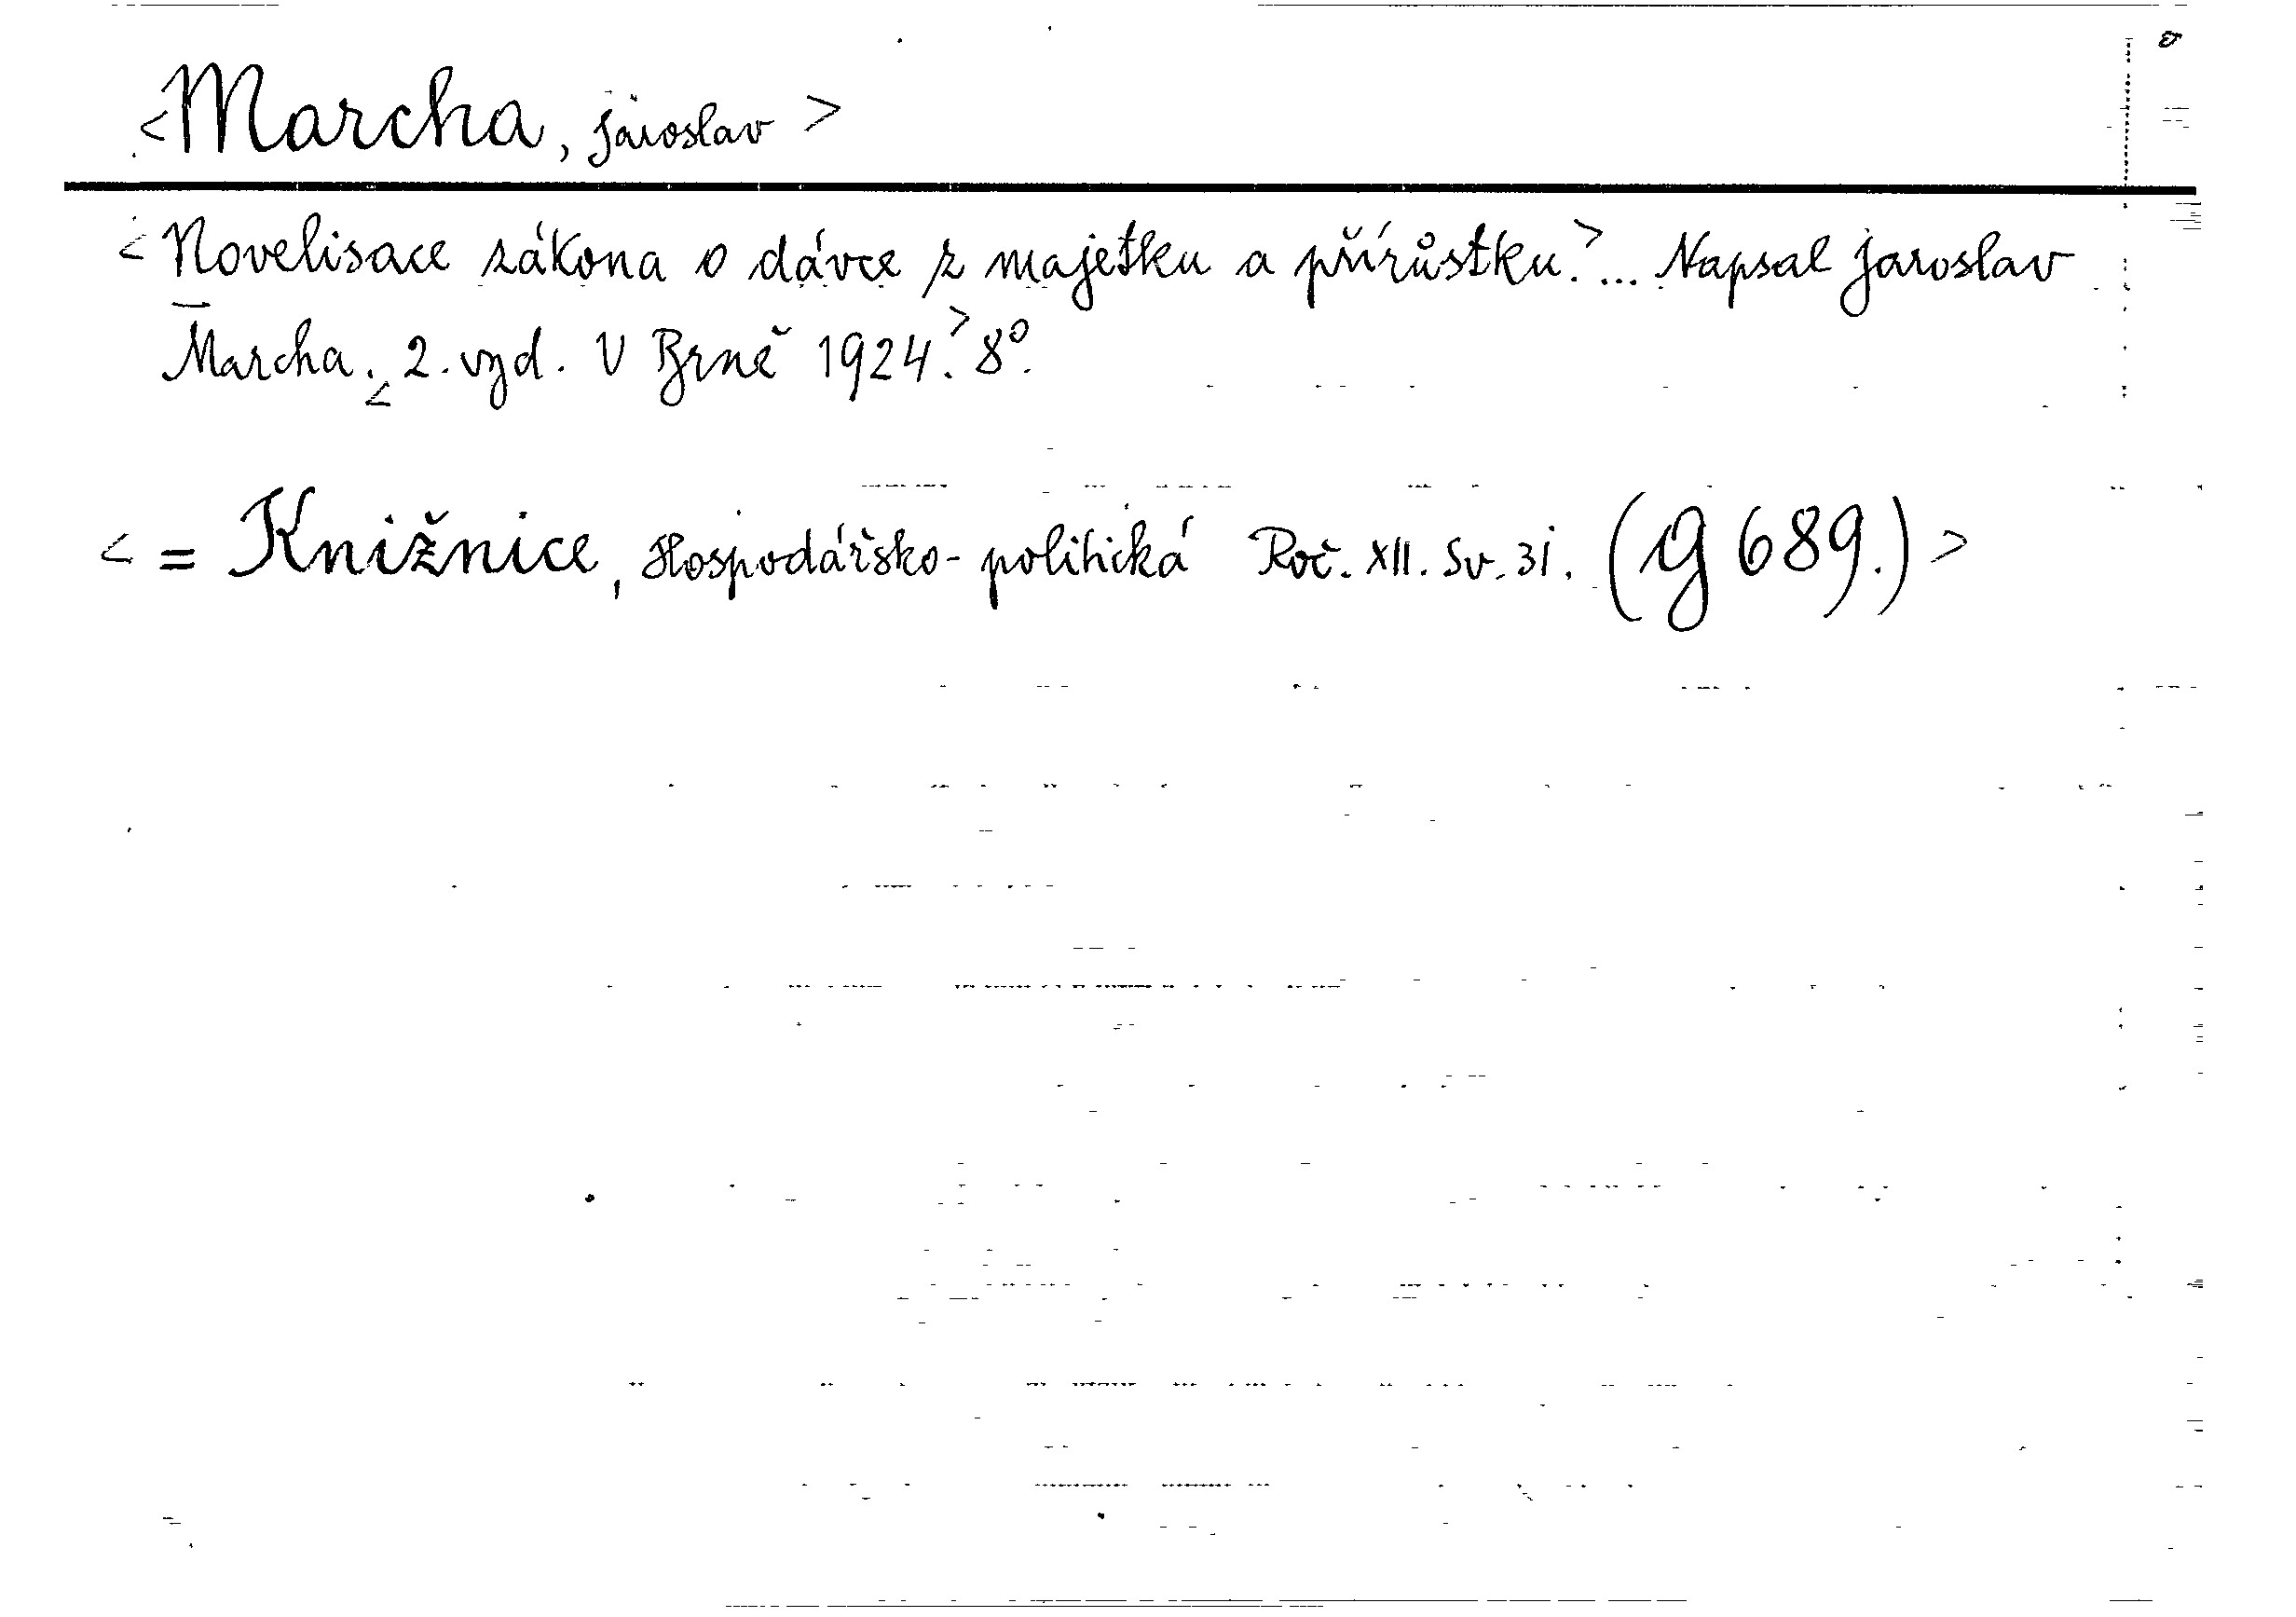 <Marcha, Jaroslav>
<Novelisace zákona o dávce z majetku a přírůstku.>... Napsal Jaroslav
Marcha. <2. vyd. V Brně 1924.> 8°.
<= Knižnice, Hospodářsko-politická Roč. XII. Sv. 31. (G 689.)>